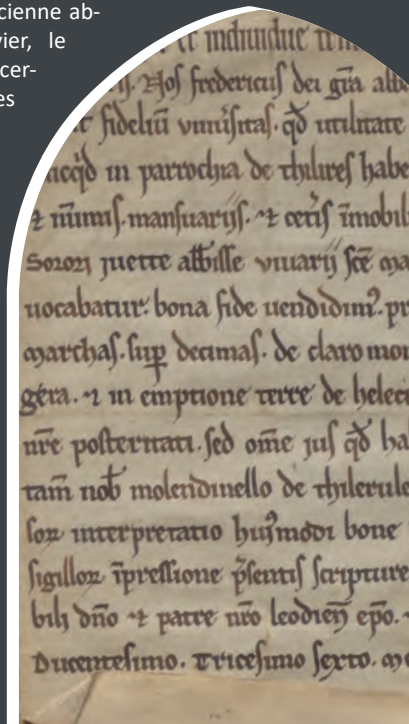 cienne ab-
vier, le
cer-
es
et indiuidue
Nos fredericus dei gr̄a abb
fideliū vniu̓sitas. qd̄ utilitate
in parrochia de thilires habe
⁊ nūmis. mansuarijs. ⁊ cet̓is īmobil
Sorori juette abb̄isse viuarij sc̄e ma
uocabatur. bona fide uendidim᷒. pr
marchas. sup̄ decimas. de claro mon
gēra. ⁊ in emptione terre de helec
nr̄e posteritati. sed om̄e jus qd̄ ha
tam̄ nob̄ molendinello de thilerule
interpretatio hui᷒modi bone
sigilloꝝ īpressione p̓sentis scripture
bili dn̄o ⁊ patre nr̄o leodien̄ ep̄o.
Ducentesimo. Tricesimo sexto. m